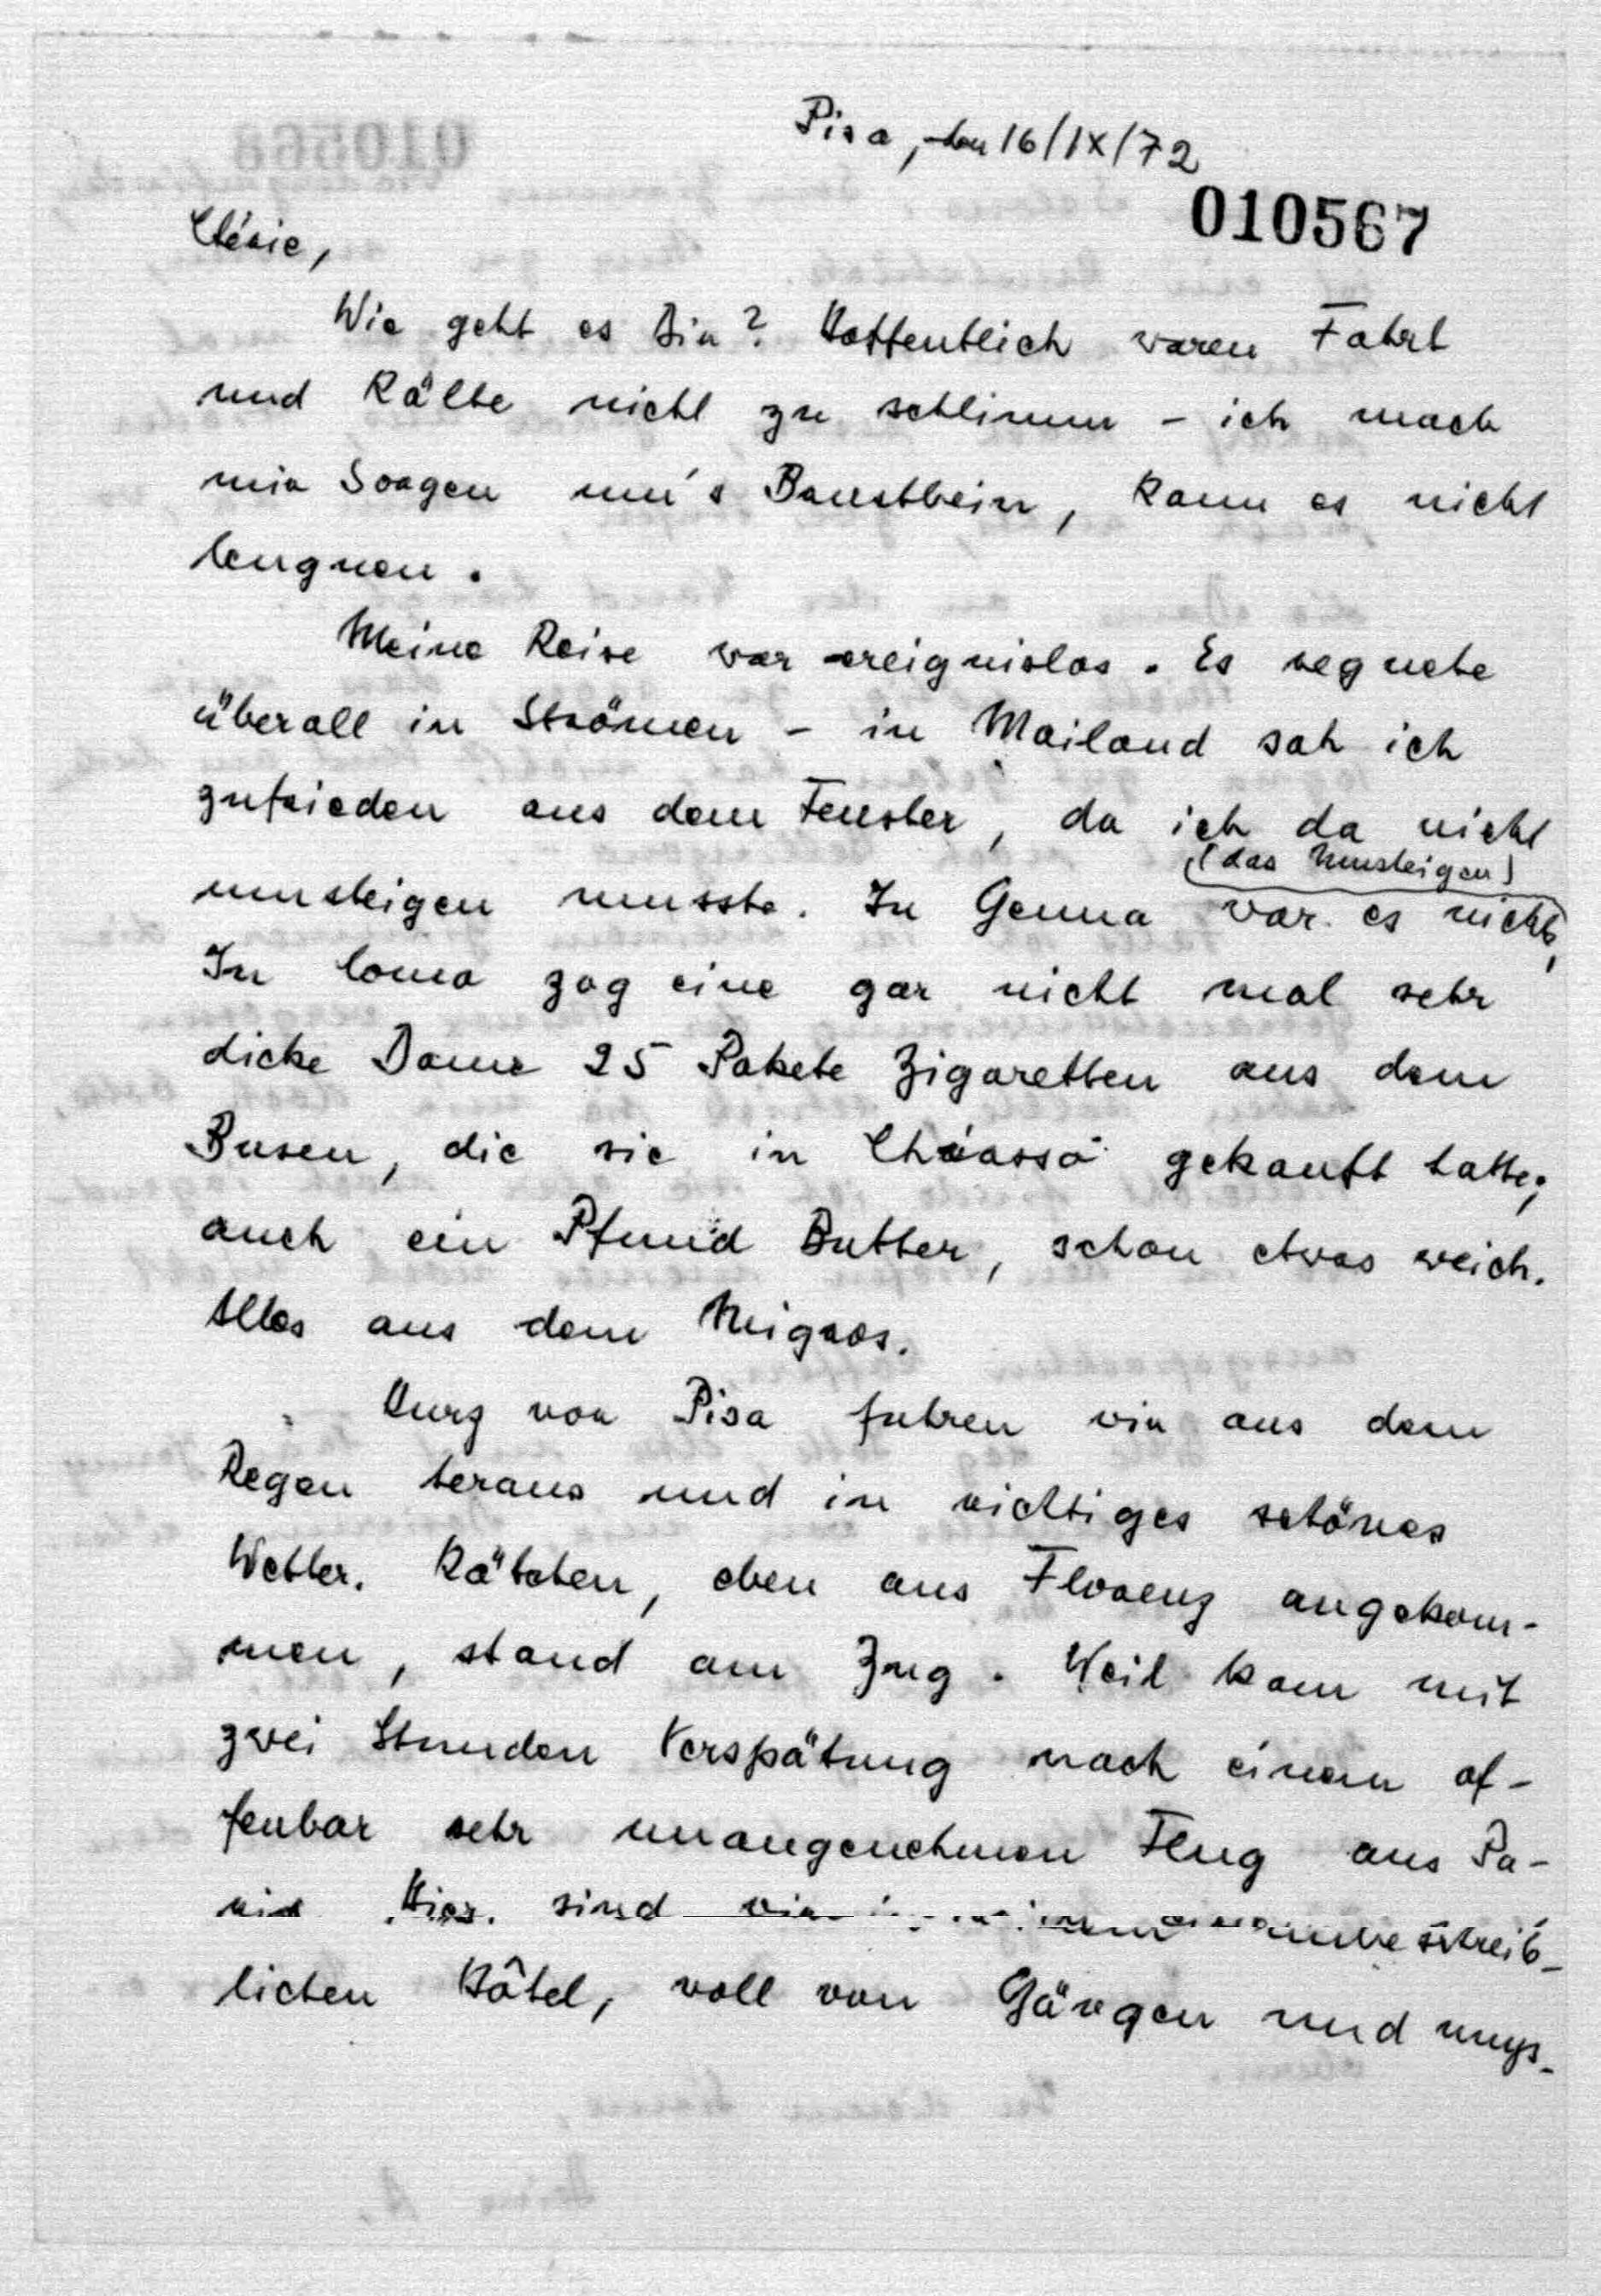 Pisa, den 16/IX/72
010567
Chérie,
Wie geht es Dir? Hoffentlich waren Fahrt
und Kälte nicht zu schlimm – ich mach
mir Sorgen um's Brustbein, kann es nicht
leugnen.
Meine Reise war ereignislos. Es regnete
überall in Strömen – in Mailand sah ich
zufrieden aus dem Fenster, da ich da nicht
(das Umsteigen)
umsteigen musste. In Genua war es nichts,
In Como zog eine gar nicht mal sehr
dicke Dame 25 Pakete Zigaretten aus dem
Busen, die sie in Chiasso gekauft hatte;
auch ein Pfund Butter, schon etwas weich.
Alles aus dem Migros.
Kurz vor Pisa fuhren wir aus dem
Regen heraus und in richtiges schönes
Wetter. Kätchen, eben aus Florenz angekom-
men, stand am Zug. Weil kam mit
zwei Stunden Verspätung nach einem of-
fenbar sehr unangenehmen Flug aus Pa-
ris. Hier sind wir in unbeschreib-
lichen Hôtel, voll von Gängen und mys-